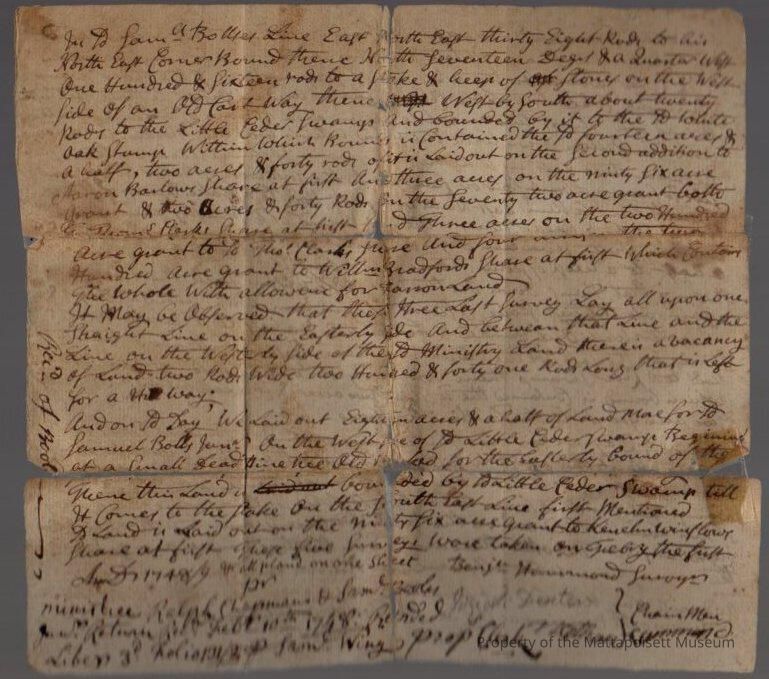 In sd Sam.ll Bollses Line East North East thirty Eight Rods to his
North East Corner Bound thence North Seventeen Degs & a Quarter West
One Hundred & Sixteen rods to a Stake & heep of Stones on the West
Side of an Old Cart Way thence West by South about twenty
Rods to the Little Ceder Swamp And bounded by it to the sd White
Oak Stump Within Which Bounds is Contained the sd fourteen acres &
a half, two acres & forty rods of it is Laid out on the Second addition to
Aaron Barlows Share at first And three acres on the ninty Six acre
grant & two Acres & forty Rods on the Seventy two acre grant both
Share at first And Three acres on the two Hundred
Acre grant to sd Thos Clarks Share And four
Hundred acre grant to Willm Bradfords Share at first Which Contains
the Whole With allowence for Barron Land
It May be Observed that these three Last Survey Lay all upon one
Straight Line on the Easterly Side And between that Line and the
Line on the Westerly Side of the sd Ministry Land there is a vacancy
of Land two Rods Wide two Hundred & forty one Rods Long that is Left
for a Highway;
And on sd Day We Laid out Eighteen acres & a half of Land More for sd
Samuel Bolls Junr On the West Side of sd Little Ceder Swamp Begining
at a Small Dead Pine tree Old for the Easterly bound of the
Thence this Land is laid out bounded by sd Little Ceder Swamp till
It Comes to the Stake On the South East Line first Mentioned
sd Land is Laid out on the Ninty Six acre grant to Kenelm Winslows
Share at first These five Surveys Ware taken on Febry the first
And 1748/9 & all pland on one Sheet Benja Hammond Survey
pr
ministree Ralph Chapmans & Saml Bolles
Junr Return Febr 10th 1748
Liber 3d Folio Saml Wing prop
Chain Men
Property of the Mattapoisett Museum